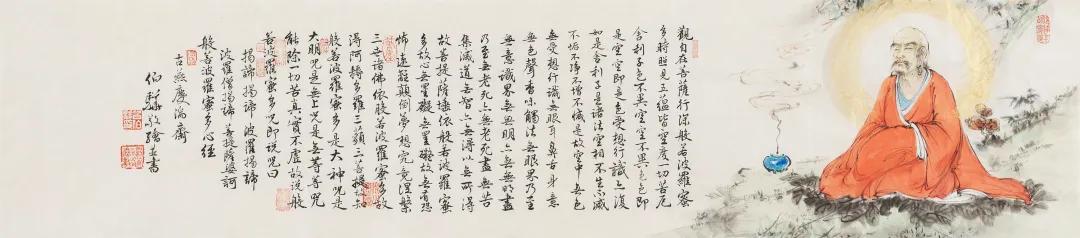 觀自在菩薩行深般若波羅蜜
多時照見五蘊皆空度一切苦厄
舍利子色不異空空不異色色即
是空空即是色受想行識亦復
如是舍利子是諸法空相不生不滅
不垢不淨不增不減是故空中無色
無受想行識無眼耳鼻舌身意
無色聲香味觸法無眼界乃至
無意識界無無明亦無無明盡
乃至無老死亦無老死盡無苦
集滅道無智亦無得以無所得
故菩提薩埵依般若波羅蜜
多故心無罣礙無罣礙故無有恐
怖遠離顛倒夢想究竟涅槃
三世諸佛依般若波羅蜜多故
得阿耨多羅三藐三菩提故知
般若波羅蜜多是大神咒是
大明咒是無上咒是無等等咒
能除一切苦真實不虛故說般
若波羅蜜多咒即說咒曰
揭諦揭諦 波羅揭諦
波羅僧揭諦 菩提薩婆訶
般若波羅蜜多心經
古燕慶瀛齋
伯敬繪並書